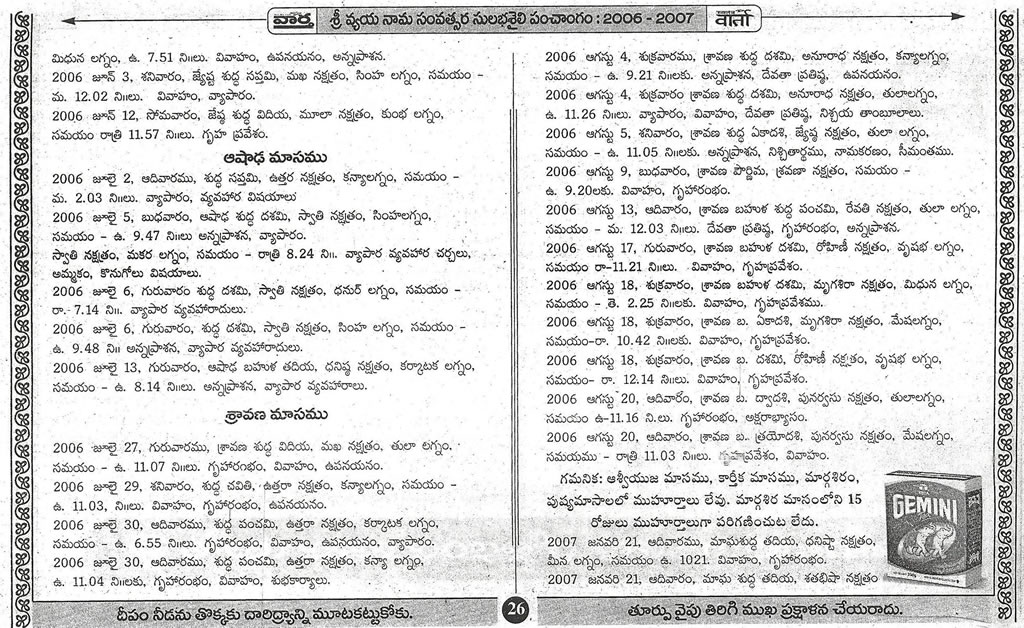 వార్త శ్రీ వ్యయ నామ సంవత్సర సులభశైలి పంచాంగం : 2006 - 2007 వార్తా
మిధున లగ్నం, ఉ. 7.51 ని॥లు. వివాహం, ఉపనయనం, అన్నప్రాశన.
2006 జూన్ 3, శనివారం, జ్యేష్ఠ శుద్ధ సప్తమి, మఖ నక్షత్రం, సింహ లగ్నం, సమయం -
మ. 12.02 ని॥లు. వివాహం, వ్యాపారం.
2006 జూన్ 12, సోమవారం, జేష్ఠ శుద్ధ విదియ, మూలా నక్షత్రం, కుంభ లగ్నం,
సమయం రాత్రి 11.57 ని॥లు. గృహ ప్రవేశం.
ఆషాఢ మాసము
2006 జూలై 2, ఆదివారము, శుద్ధ సప్తమి, ఉత్తర నక్షత్రం, కన్యాలగ్నం, సమయం -
మ. 2.03 ని॥లు. వ్యాపారం, వ్యవహార విషయాలు
2006 జూలై 5, బుధవారం, ఆషాఢ శుద్ధ దశమి, స్వాతి నక్షత్రం, సింహలగ్నం,
సమయం - ఉ. 9.47 ని॥లు అన్నప్రాశన, వ్యాపారం.
స్వాతి నక్షత్రం, మకర లగ్నం, సమయం - రాత్రి 8.24 ని॥. వ్యాపార వ్యవహార చర్చలు,
అమ్మకం, కొనుగోలు విషయాలు.
2006 జూలై 6, గురువారం శుద్ధ దశమి, స్వాతి నక్షత్రం, ధనుర్ లగ్నం, సమయం -
రా. 7.14 ని॥. వ్యాపార వ్యవహారాదులు.
2006 జూలై 6, గురువారం, శుద్ధ దశమి, స్వాతి నక్షత్రం, సింహ లగ్నం, సమయం -
ఉ. 9.48 ని॥ అన్నప్రాశన, వ్యాపార వ్యవహారాదులు.
2006 జూలై 13, గురువారం, ఆషాఢ బహుళ తదియ, ధనిష్ఠ నక్షత్రం, కర్కాటక లగ్నం,
సమయం - ఉ. 8.14 ని॥లు. అన్నప్రాశన, వ్యాపార వ్యవహారాలు.
శ్రావణ మాసము
2006 జూలై 27, గురువారము, శ్రావణ శుద్ధ విదియ, మఖ నక్షత్రం, తులా లగ్నం.
సమయం - ఉ. 11.07 ని॥లు. గృహారంభం, వివాహం, ఉపనయనం.
2006 జూలై 29, శనివారం, శుద్ధ చవితి, ఉత్తరా నక్షత్రం, కన్యాలగ్నం, సమయం -
ఉ. 11.03, ని॥లు, గృహారంభం, ఉపనయనం.
2006 జూలై 30, ఆదివారము, శుద్ధ పంచమి, ఉత్తరా నక్షత్రం, కర్కాటక లగ్నం,
సమయం - ఉ. 6.55 ని॥లు. గృహారంభం, వివాహం, ఉపనయనం, వ్యాపారం.
2006 జూలై 30, ఆదివారము, శుద్ధ పంచమి, ఉత్తరా నక్షత్రం, కన్యా లగ్నం,
ఉ. 11.04 ని॥లకు, గృహారంభం, వివాహం, శుభకార్యాలు.
2006 ఆగస్టు 4, శుక్రవారము, శ్రావణ శుద్ధ దశమి, అనూరాధ నక్షత్రం, కన్యాలగ్నం,
సమయం - ఉ. 9.21 ని॥లకు. అన్నప్రాశన, దేవతా ప్రతిష్ఠ, ఉపనయనం.
2006 ఆగస్టు 4, శుక్రవారం శ్రావణ శుద్ధ దశమి, అనూరాధ నక్షత్రం, తులాలగ్నం,
ఉ. 11.26 ని॥లు. వ్యాపారం, వివాహం, దేవతా ప్రతిష్ఠ, నిశ్చయ తాంబూలాలు.
2006 ఆగస్టు 5, శనివారం, శ్రావణ శుద్ధ ఏకాదశి, జ్యేష్ఠ నక్షత్రం, తులా లగ్నం,
సమయం - ఉ. 11.05 ని॥లకు. అన్నప్రాశన, నిశ్చితార్థము, నామకరణం, సీమంతము.
2006 ఆగస్టు 9, బుధవారం, శ్రావణ పౌర్ణిమ, శ్రవణా నక్షత్రం, సమయం -
ఉ. 9.20లకు. వివాహం, గృహారంభం.
2006 ఆగస్టు 13, ఆదివారం, శ్రావణ బహుళ శుద్ధ పంచమి, రేవతి నక్షత్రం, తులా లగ్నం,
సమయం - మ. 12.03 ని॥లు. దేవతా ప్రతిష్ఠ, గృహారంభం, అన్నప్రాశన.
2006 ఆగస్టు 17, గురువారం, శ్రావణ బహుళ దశమి, రోహిణీ నక్షత్రం, వృషభ లగ్నం,
సమయం రా-11.21 ని॥లు. వివాహం, గృహప్రవేశం.
2006 ఆగస్టు 18, శుక్రవారం, శ్రావణ బహుళ దశమి, మృగశిరా నక్షత్రం, మిధున లగ్నం,
సమయం - తె. 2.25 ని॥లకు. వివాహం, గృహప్రవేశము.
2006 ఆగస్టు 18, శుక్రవారం, శ్రావణ బ. ఏకాదశి, మృగశిరా నక్షత్రం, మేషలగ్నం,
సమయం-రా. 10.42 ని॥లకు. వివాహం, గృహప్రవేశం.
2006 ఆగస్టు 18, శుక్రవారం, శ్రావణ బ. దశమి, రోహిణీ నక్షత్రం, వృషభ లగ్నం,
సమయం- రా. 12.14 ని॥లు. వివాహం, గృహప్రవేశం.
2006 ఆగస్టు 20, ఆదివారం, శ్రావణ బ. ద్వాదశి, పునర్వసు నక్షత్రం, తులాలగ్నం,
సమయం ఉ-11.16 ని.లు. గృహారంభం, అక్షరాభ్యాసం.
2006 ఆగస్టు 20, ఆదివారం, శ్రావణ బ. త్రయోదశి, పునర్వసు నక్షత్రం, మేషలగ్నం,
సమయము - రాత్రి 11.03 ని॥లు. గృహప్రవేశం, వివాహం.
గమనిక: ఆశ్వీయుజ మాసము, కార్తీక మాసము, మార్గశిరం,
పుష్యమాసాలలో ముహూర్తాలు లేవు. మార్గశిర మాసంలోని 15
రోజులు ముహూర్తాలుగా పరిగణించుట లేదు.
2007 జనవరి 21, ఆదివారము, మాఘశుద్ధ తదియ, ధనిష్టా నక్షత్రం,
మీన లగ్నం, సమయం ఉ. 1021. వివాహం, గృహారంభం.
2007 జనవరి 21, ఆదివారం, మాఘ శుద్ధ తదియ, శతభిషా నక్షత్రం
GEMINI
దీపం నీడను తొక్కకు దారిద్ర్యాన్ని మూటకట్టుకోకు.
26
తూర్పు వైపు తిరిగి ముఖ ప్రక్షాళన చేయరాదు.